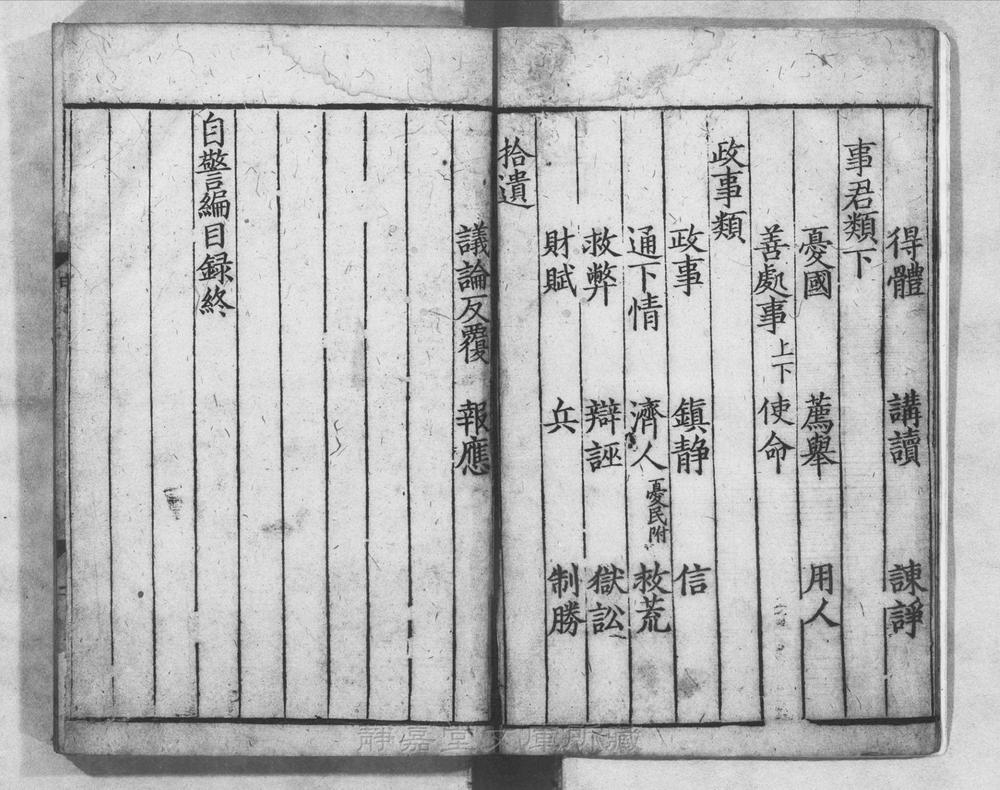 得體 講讀 諫諍
事君類下
憂國 薦舉 用人
善處事上下 使命
政事類
政事 鎮静 信
通下情 濟人憂民附 救荒
救弊 辯誣 獄訟
財賦 兵 制勝
拾遺
議論反覆 報應
自警編目録終
靜嘉堂文庫所藏